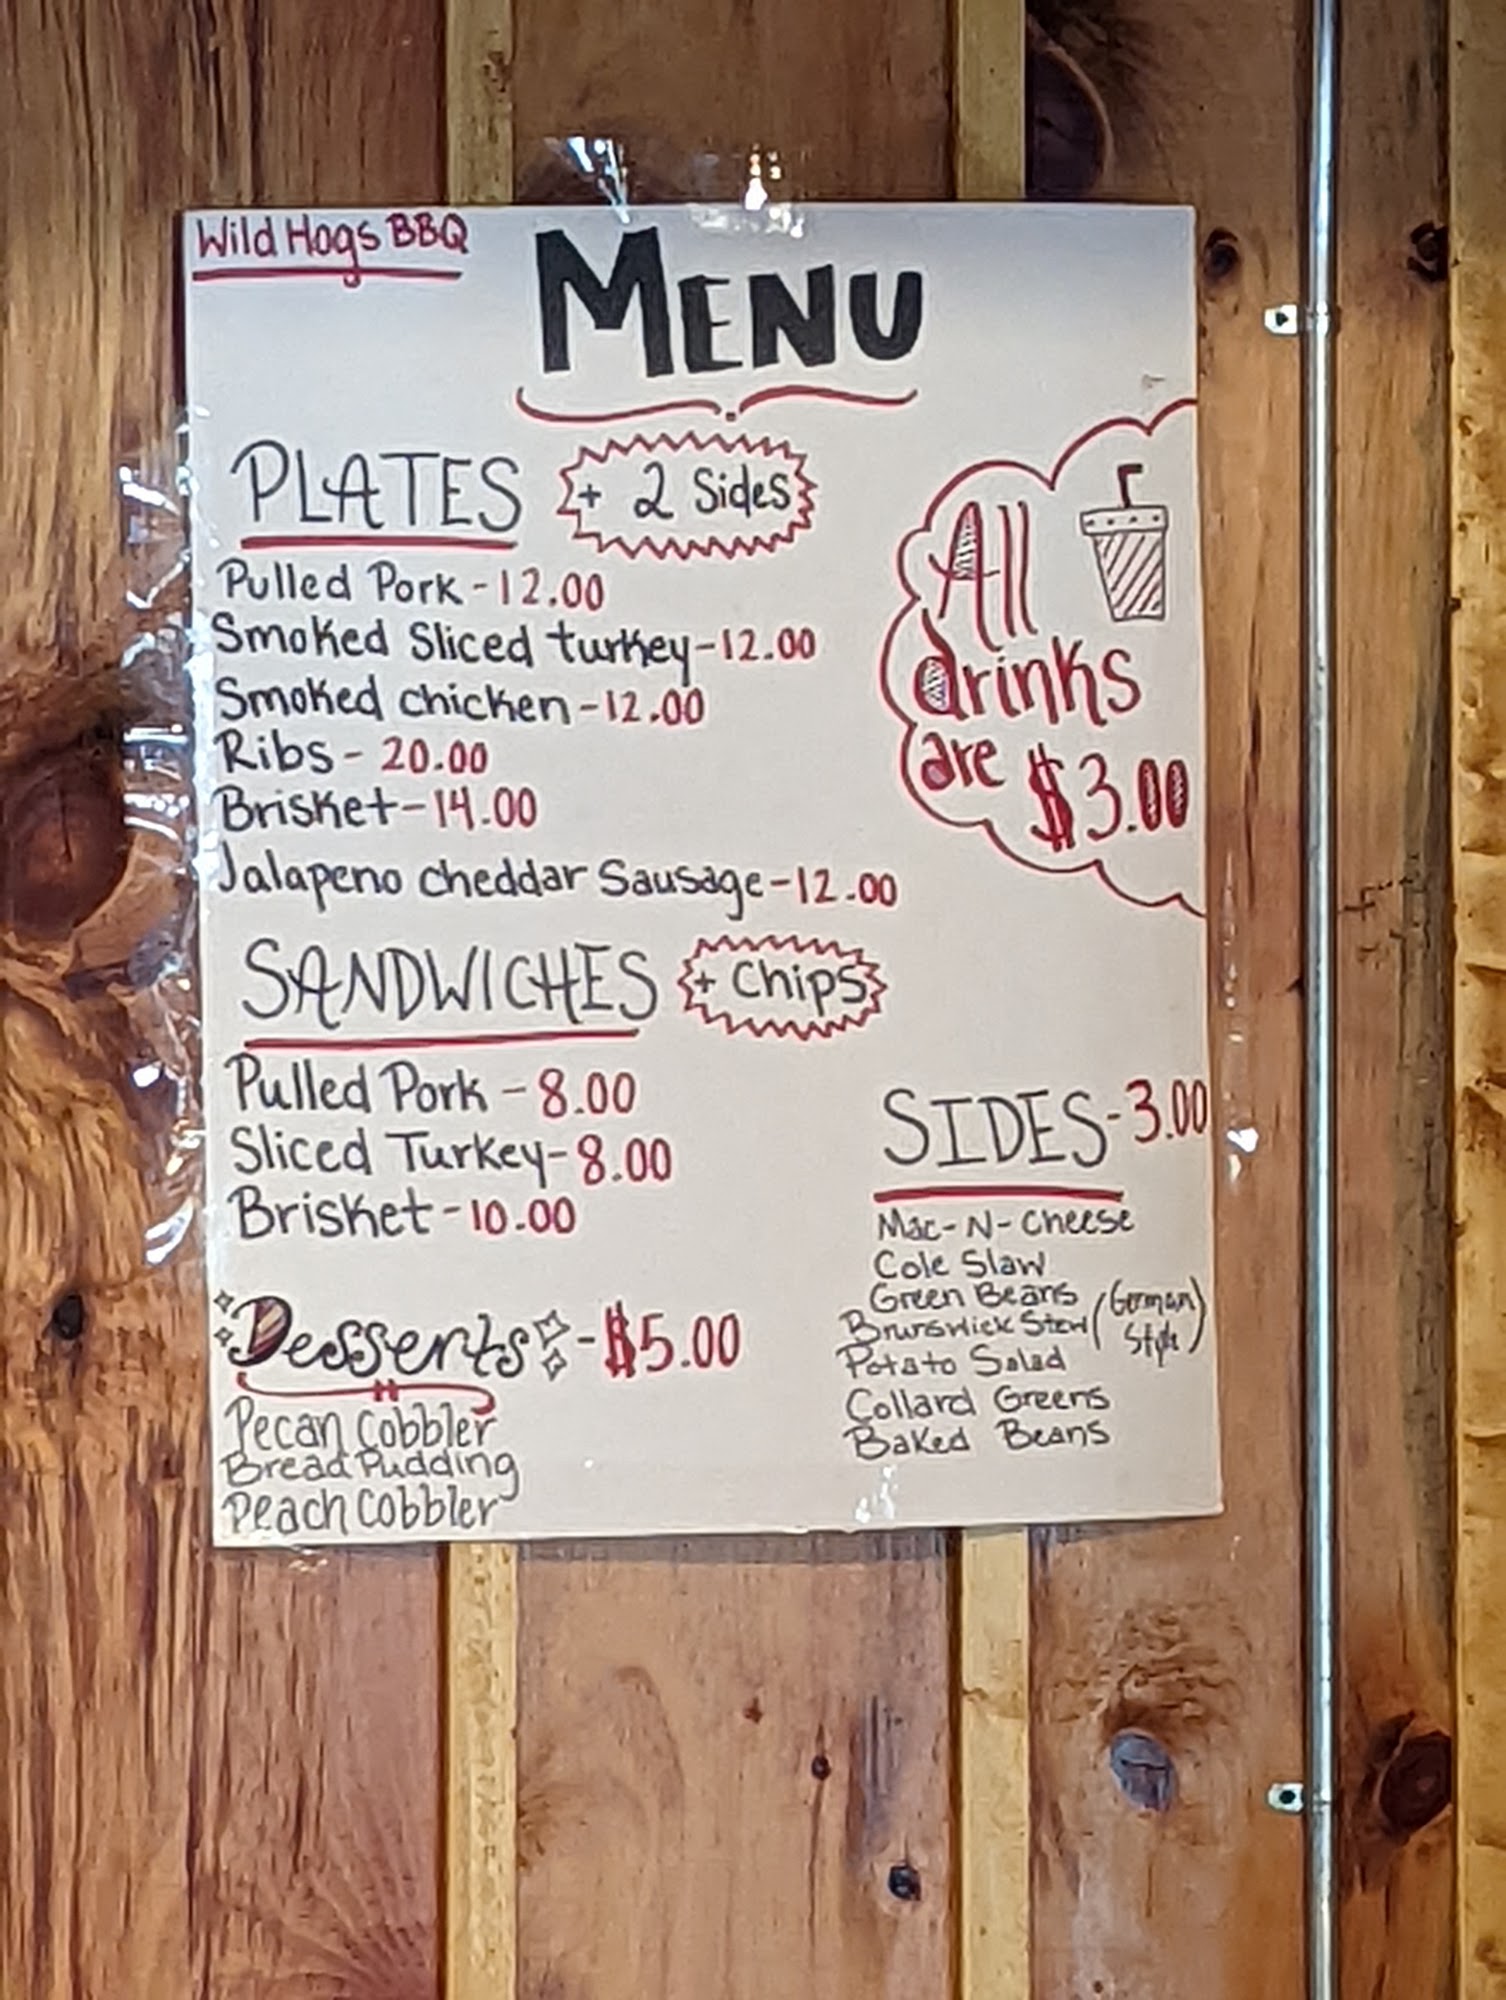 Wild Hogs BBQ
MENU
PLATES + 2 Sides
Pulled Pork - 12.00
Smoked Sliced turkey - 12.00
Smoked chicken - 12.00
Ribs - 20.00
Brisket - 14.00
Jalapeno cheddar Sausage - 12.00
All
drinks
are $3.00
SANDWICHES + Chips
Pulled Pork - 8.00
Sliced Turkey - 8.00
Brisket - 10.00
Desserts - $5.00
Pecan Cobbler
Bread Pudding
Peach Cobbler
SIDES - 3.00
Mac-N-Cheese
Cole Slaw
Green Beans
Brunswick Stew
Potato Salad (German Style)
Collard Greens
Baked Beans